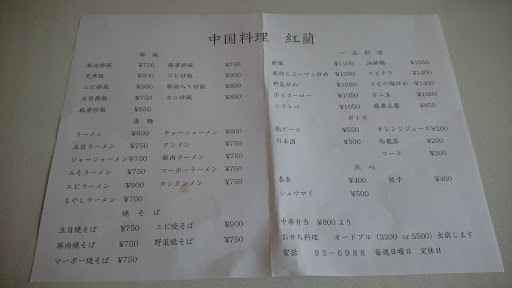 中国料理 紅蘭
御飯
豚肉掛飯 ¥750 麻婆掛飯 ¥750
天津飯 ¥800 エビ炒飯 ¥900
エビ掛飯 ¥900 豚肉入り炒飯 ¥850
五目掛飯 ¥750 カニ炒飯 ¥850
麻婆炒飯 ¥850
湯麺
ラーメン ¥600 チャーシューメン ¥800
五目ラーメン ¥750 タンメン ¥750
ジャージャーメン¥750 豚肉ラーメン ¥750
みそラーメン ¥750 マーボーラーメン ¥750
エビラーメン ¥900 タンタンメン ¥750
もやしラーメン ¥700
焼そば
五目焼そば ¥750 エビ焼そば ¥900
豚肉焼そば ¥750 野菜焼そば ¥750
マーボー焼そば ¥750
一品料理
酢豚 ¥1100 ¥1050
豚肉とピーマン炒め ¥1050 エビチリ ¥1400
野菜炒め ¥1050 エビの塩炒め ¥1400
ホイコーロー ¥1050 カニ玉 ¥1050
ニラレバ ¥1050 麻婆豆腐 ¥850
ボトル
瓶ビール ¥550 オレンジジュース¥200
日本酒 ¥300 烏龍茶 ¥200
コーラ ¥200
点心
春巻 ¥400 餃子 ¥400
シュウマイ ¥500
中華弁当 ¥800より
おせち料理 オードブル (3300 or 5500) 出前します
電話 93-6988 毎週日曜日 定休日